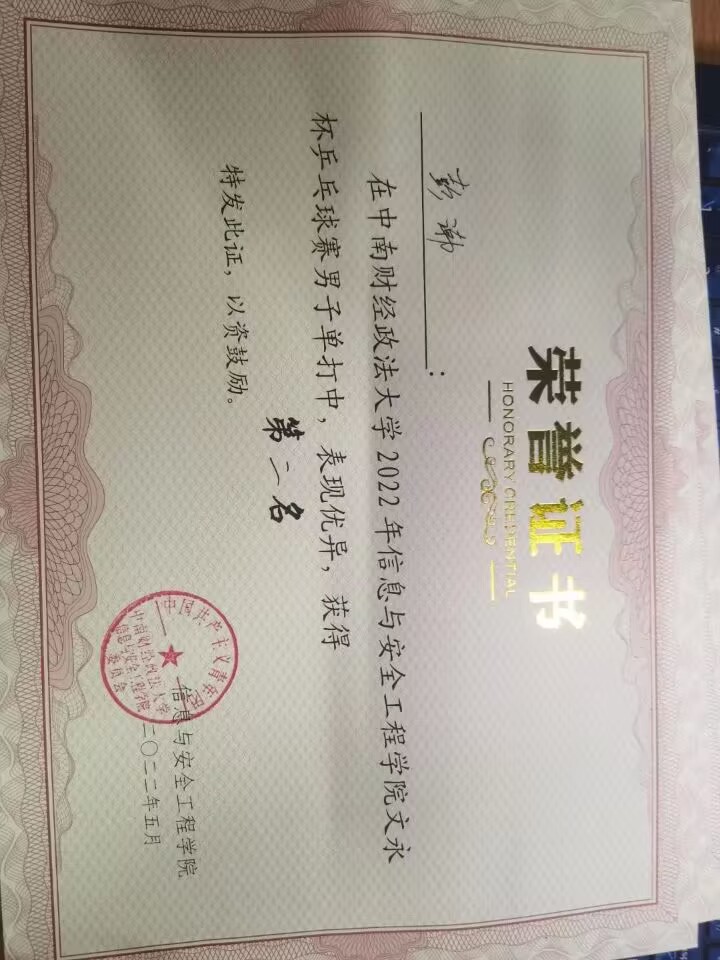 荣誉证书
HONORARY CREDENTIAL
彭
:
在中南财经政法大学2022年信息与安全工程学院文永
杯乒乓球赛男子单打中，表现优异，获得
第二名
特发此证，以资鼓励。
信息与安全工程学院
二〇二二年五月
中国共产主义青年团
中南财经政法大学
信息与安全工程学院
委员会